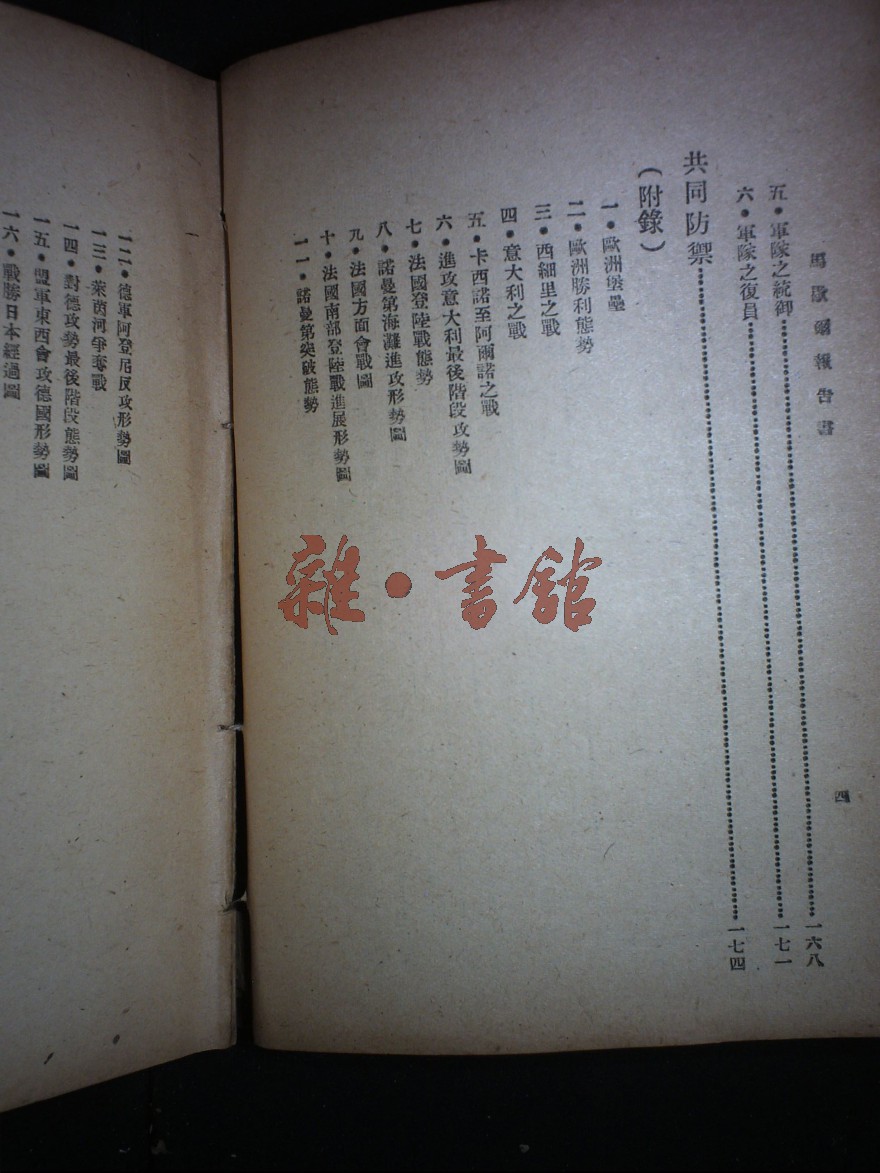 馬歇爾報告書
四
五・軍隊之統御……一六八
六・軍隊之復員……一七一
共同防禦……一七四
（附錄）
一・歐洲堡壘
二・歐洲勝利態勢
三・西細里之戰
四・意大利之戰
五・卡西諾至阿爾諾之戰
六・進攻意大利最後階段攻勢圖
七・法國登陸戰態勢
八・諾曼第海灘進攻形勢圖
九・法國方面會戰圖
十・法國南部登陸戰進展形勢圖
一一・諾曼第突破態勢
一二・德軍阿登尼反攻形勢圖
一三・萊茵河爭奪戰
一四・對德攻勢最後階段態勢圖
一五・盟軍東西會攻德國形勢圖
一六・戰勝日本經過圖
雜・書館